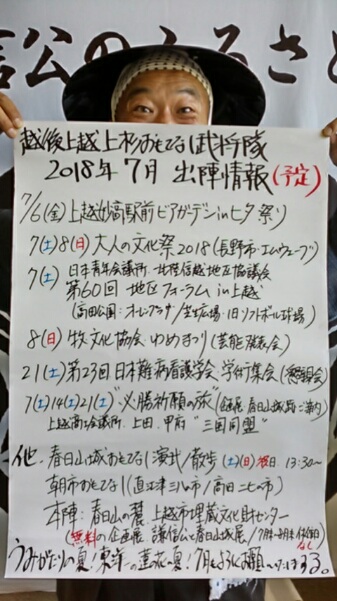 公のふるさと
越後上越上杉おもてなし武将隊
2018年7月 出陣情報(予定)
7/6(金)上越妙高駅前ビアガーデンin七夕祭り
7(土)8(日)大人の文化祭2018(長野市・エムウェーブ)
7(土)日本青年会議所 北陸信越地区協議会
第60回 地区フォーラムin上越
(高田公園:オーレンプラザ/芝生広場・旧ソフトボール球場)
8(日)牧文化協会 ゆめまつり(芸能発表会)
21(土)第23回日本難病看護学会 学術集会(懇親会)
7(土)14(土)21(土)"必勝祈願の旅"(春日山城跡ご案内)
上越商工会議所・上田・甲府 "三国同盟"
他・春日山城おもてなし演武/散歩(土)(日)祝日 13:30〜
朝市おもてなし(直江津三八の市/高田二七の市)
本陣:春日山の麓 上越市埋蔵文化財センター
(無料の企画展 謙信公と春日山城展/7月〜 休館日なし)
うみがたりの夏!東洋一の蓮の夏!7月もよろしくお願い